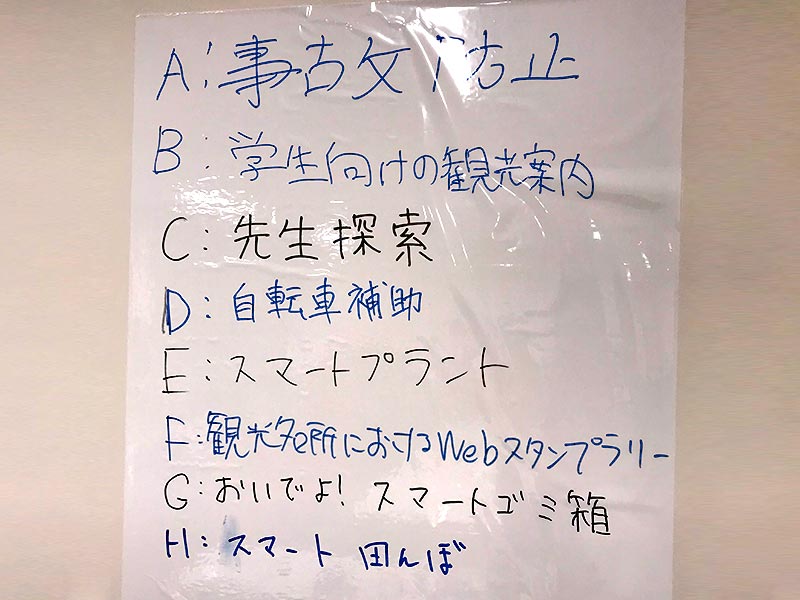 A: 事故防止
B: 学生向けの観光案内
C: 先生探索
D: 自転車補助
E: スマートプラント
F: 観光名所におけるWebスタンプラリー
G: おいでよ! スマートゴミ箱
H: スマート 田んぼ